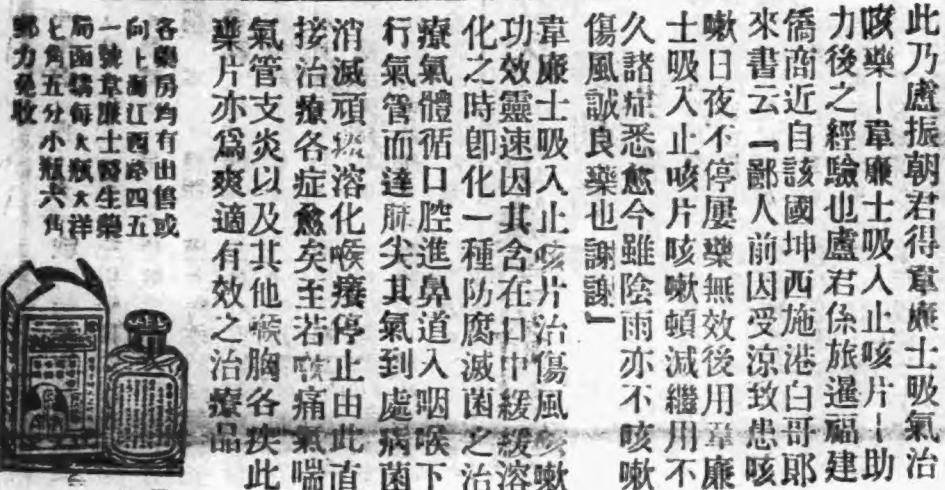 此乃盧振朝君得韋廉士吸氣治
咳藥—韋廉士吸入止咳片—助
力後之經驗也盧君係旅暹福建
僑商近自該國坤西施港白哥郎
來書云『鄙人前因受涼致患咳
嗽日夜不停屢藥無效後用韋廉
士吸入止咳片咳嗽頓減繼用不
久諸症悉愈今雖陰雨亦不咳嗽
傷風誠良藥也謝謝』
韋廉士吸入止咳片治傷風咳嗽
功效靈速因其含在口中緩緩溶
化之時即化一種防腐滅菌之治
療氣體循口腔進鼻道入咽喉下
行氣管而達肺尖其氣到處病菌
消滅頑痰溶化喉癢停止由此直
接治療各症愈矣至若喉痛氣喘
氣管支炎以及其他喉胸各疾此
藥片亦爲爽適有效之治療品
各藥房均有出售或
向上海江西路四五
一號韋廉士醫生藥
局函購每大瓶大洋
七角五分小瓶六角
郵力免收